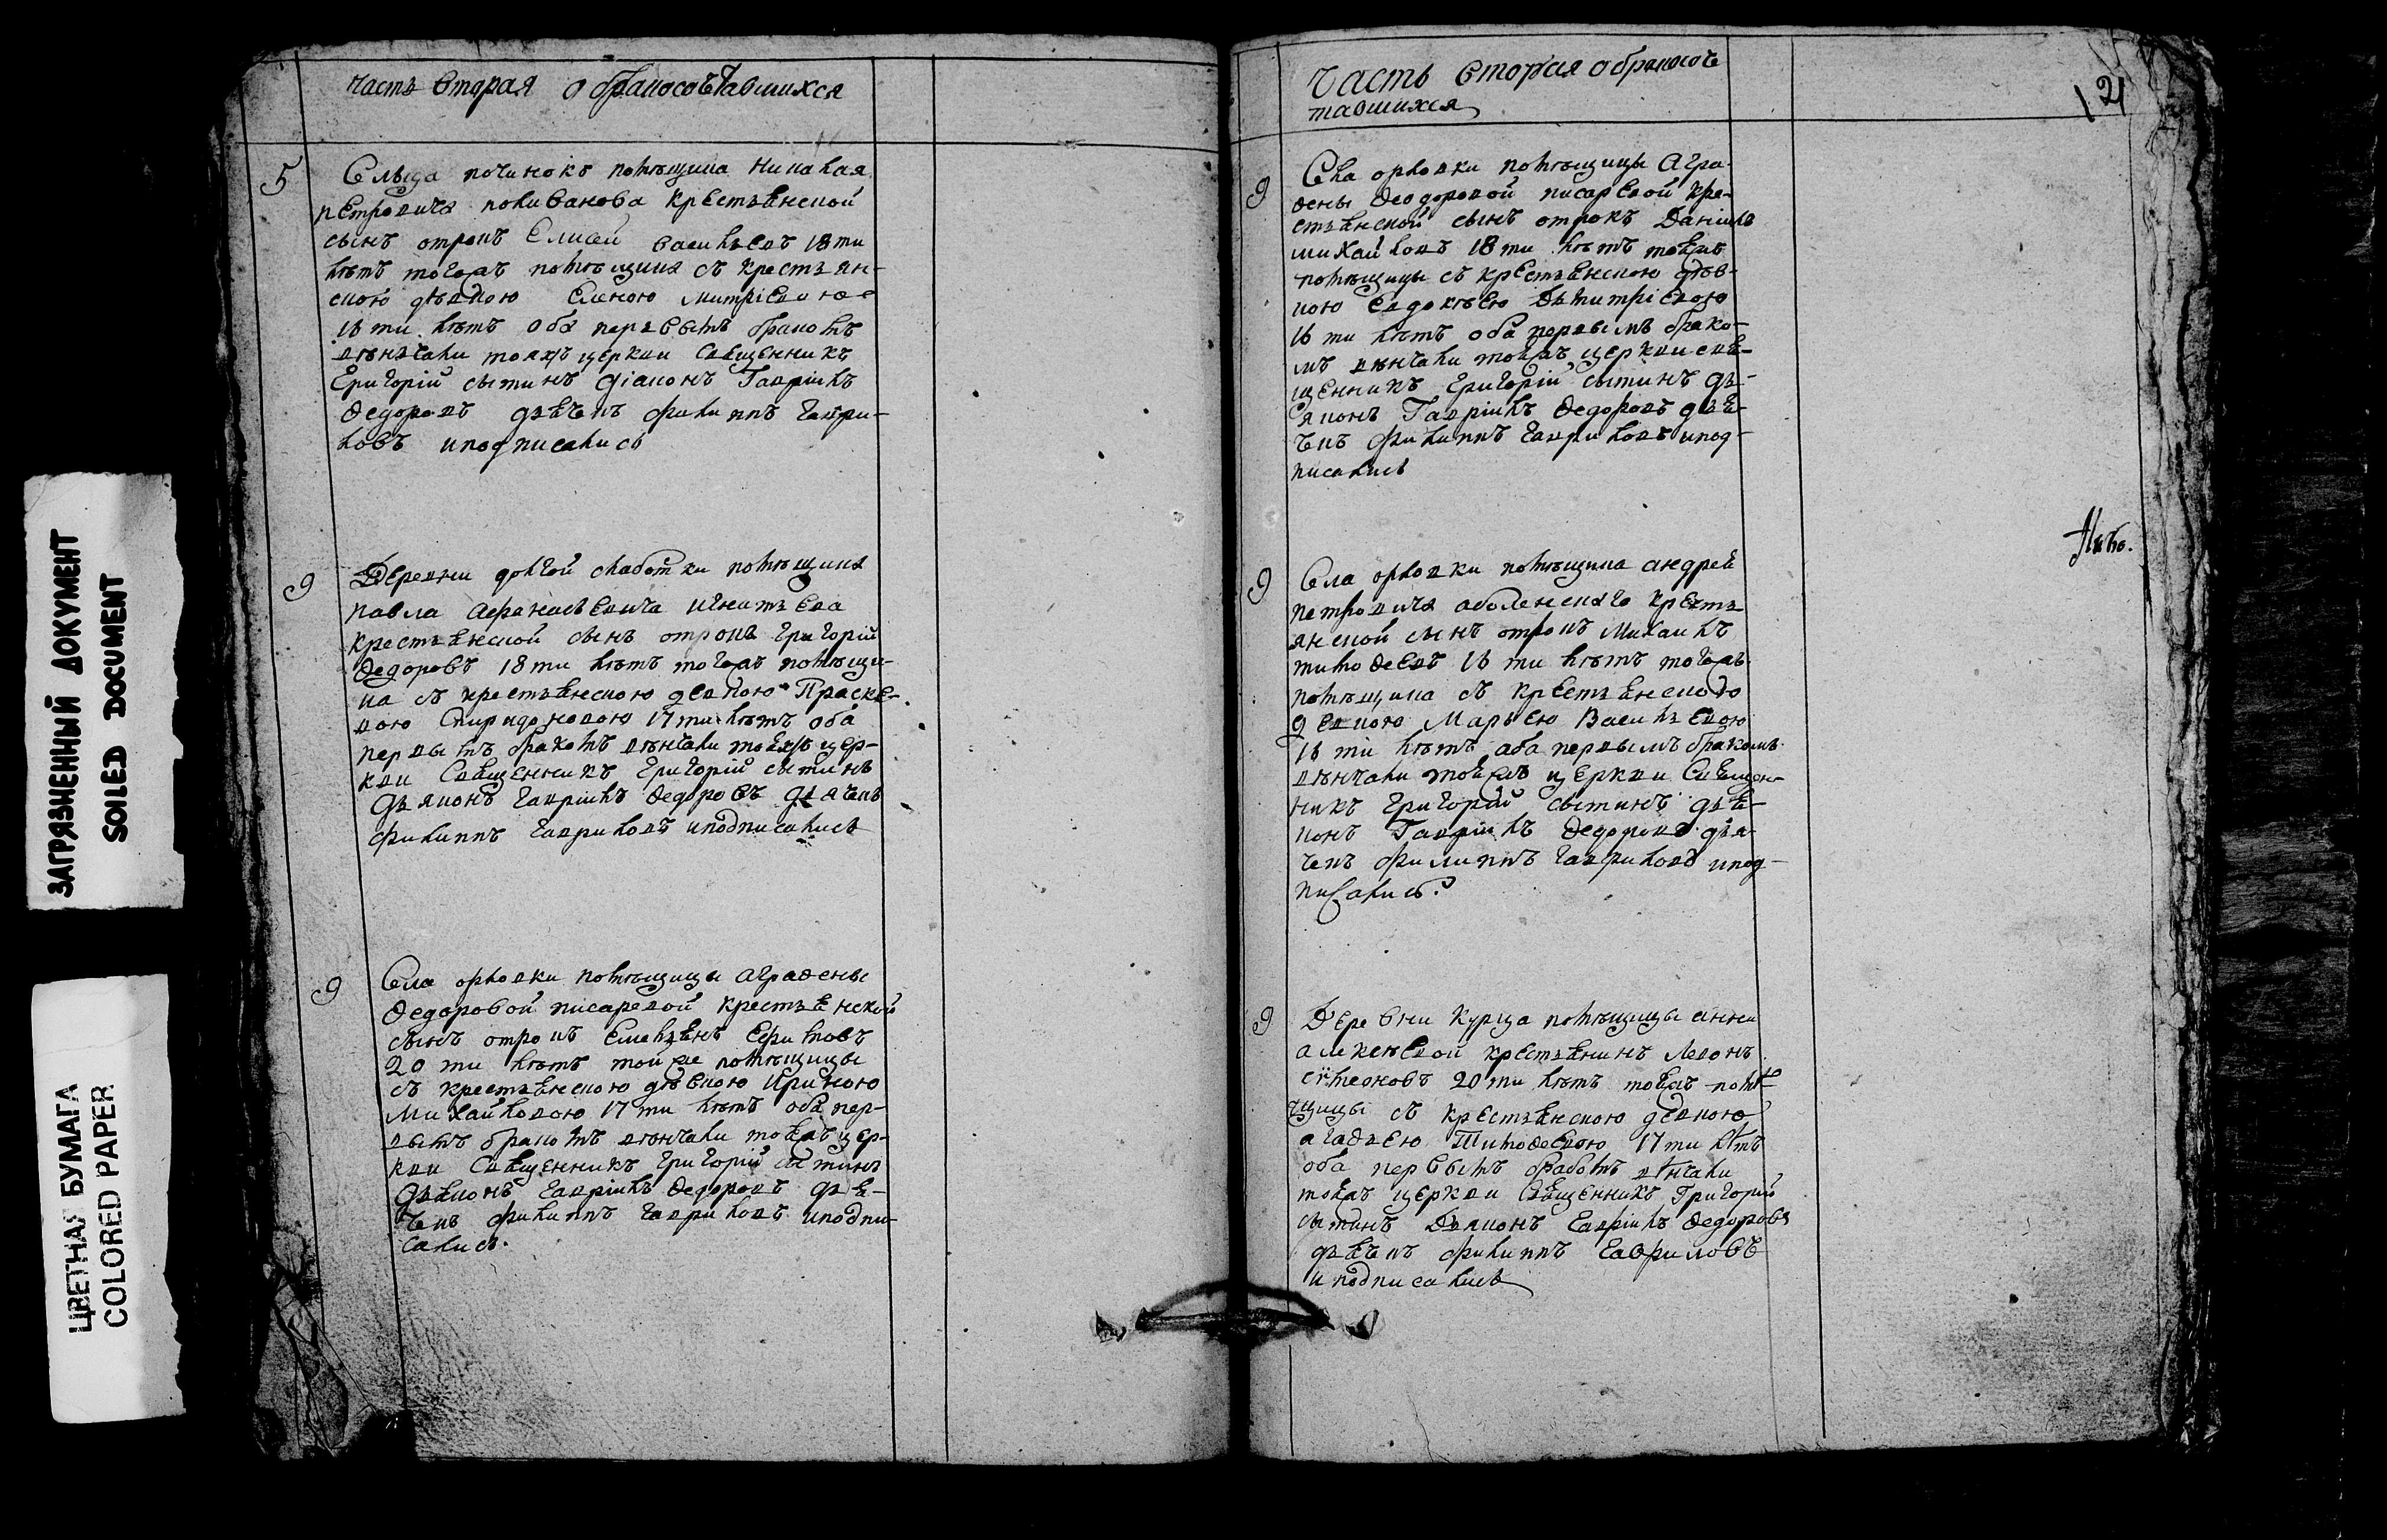 часть вторая о бракосочетавшихся
5
Сельца починокъ помѣщика Николая
петровича поливанова крестьянской
сынъ отрокъ Елисей васильевъ 18 ти
лѣтъ тогожъ помѣщика съ крестьян-
ской дѣвкою Еленою митрiевою
16 ти лѣтъ оба первымъ бракомъ
вѣнчали тояжъ церкви священникъ
Григорiй сытинъ дiаконъ Гаврiилъ
Ѳедоровъ дьячекъ филиппъ гаври-
ловъ иподписались
9
Деревни долгой слаботки помѣщика
павла афанасьевича игнатьева
крестьянской сынъ отрокъ григорiй
Ѳедоровъ 18 ти лѣтъ тогожъ помѣщи-
ка съ крестьянскою девкою Праско-
вою Спиридоновою 17 ти лѣтъ оба
первымъ бракомъ вѣнчали тояжъ цер-
кви Священникъ григорiй сытинъ
дьяконъ гаврiилъ Ѳедоровъ дьячекъ
филиппъ гавриловъ иподписались
9
Села орловки помѣщицы аграѳены
Ѳедоровой писаревой крестьянской
сынъ отрокъ Емельянъ Ефимовъ
20 ти лѣтъ той же помѣщицы
съ крестьянскою дѣвкою Ириною
Михайловою 17 ти лѣтъ оба пер-
вымъ бракомъ вѣнчали тояжъ цер-
кви Священникъ григорiй сытинъ
Дьяконъ гаврiилъ Ѳедоровъ дья-
чекъ филиппъ гавриловъ иподпи-
сались.
Часть вторая о бракосоче
тавшихся
121
9
Сла орловки помѣщицы Агра-
ѳены Ѳеодоровой писаревой кре-
стьянской сынъ отрокъ Данiилъ
михайловъ 18 ти лѣтъ тояжъ
помѣщицы съ крестьянскою дѣв-
кою Евдокѣею Димитрiевою
16 ти лѣтъ оба первымъ брако-
мъ вѣнчали тояжъ церкви свя-
щенникъ григорiй сытинъ дь-
яконъ Гаврiилъ Ѳедоровъ дья-
чекъ филиппъ гавриловъ ипод-
писались
9
Села орловки помѣщика андрей
петровича аболенскаго крестья
янской сынъ отрокъ Михаилъ
тимоѳеевъ 16 ти лѣтъ тогожъ
помѣщика съ крестьянскою
девкою Марьею Васильевою
16 ти лѣтъ аба первымъ бракомъ
вѣнчали тояжъ церкви Священ-
никъ григорiй сытинъ дья-
конъ Гаврiилъ Ѳедоровъ дья
чекъ филиппъ гавриловъ ипод-
писались.
9
Деревни Курца помѣщицы анны
алексѣевой крестьянинъ Левонъ
20 ти лѣтъ тояжъ помѣ-
щицы съ крестьянскою девкою
агаѳьею Тимоѳеевою 17 ти лѣтъ
оба первымъ бракомъ вѣнчали
тояжъ церкви Священникъ Григорiй
сытинъ Дьяконъ Гаврiилъ Ѳедоровъ
дьячекъ филиппъ гавриловъ
и подписались
ЗАГРЯЗНЕННЫЙ ДОКУМЕНТ
SOILED DOCUMENT
ЦВЕТНАЯ БУМАГА
COLORED PAPER